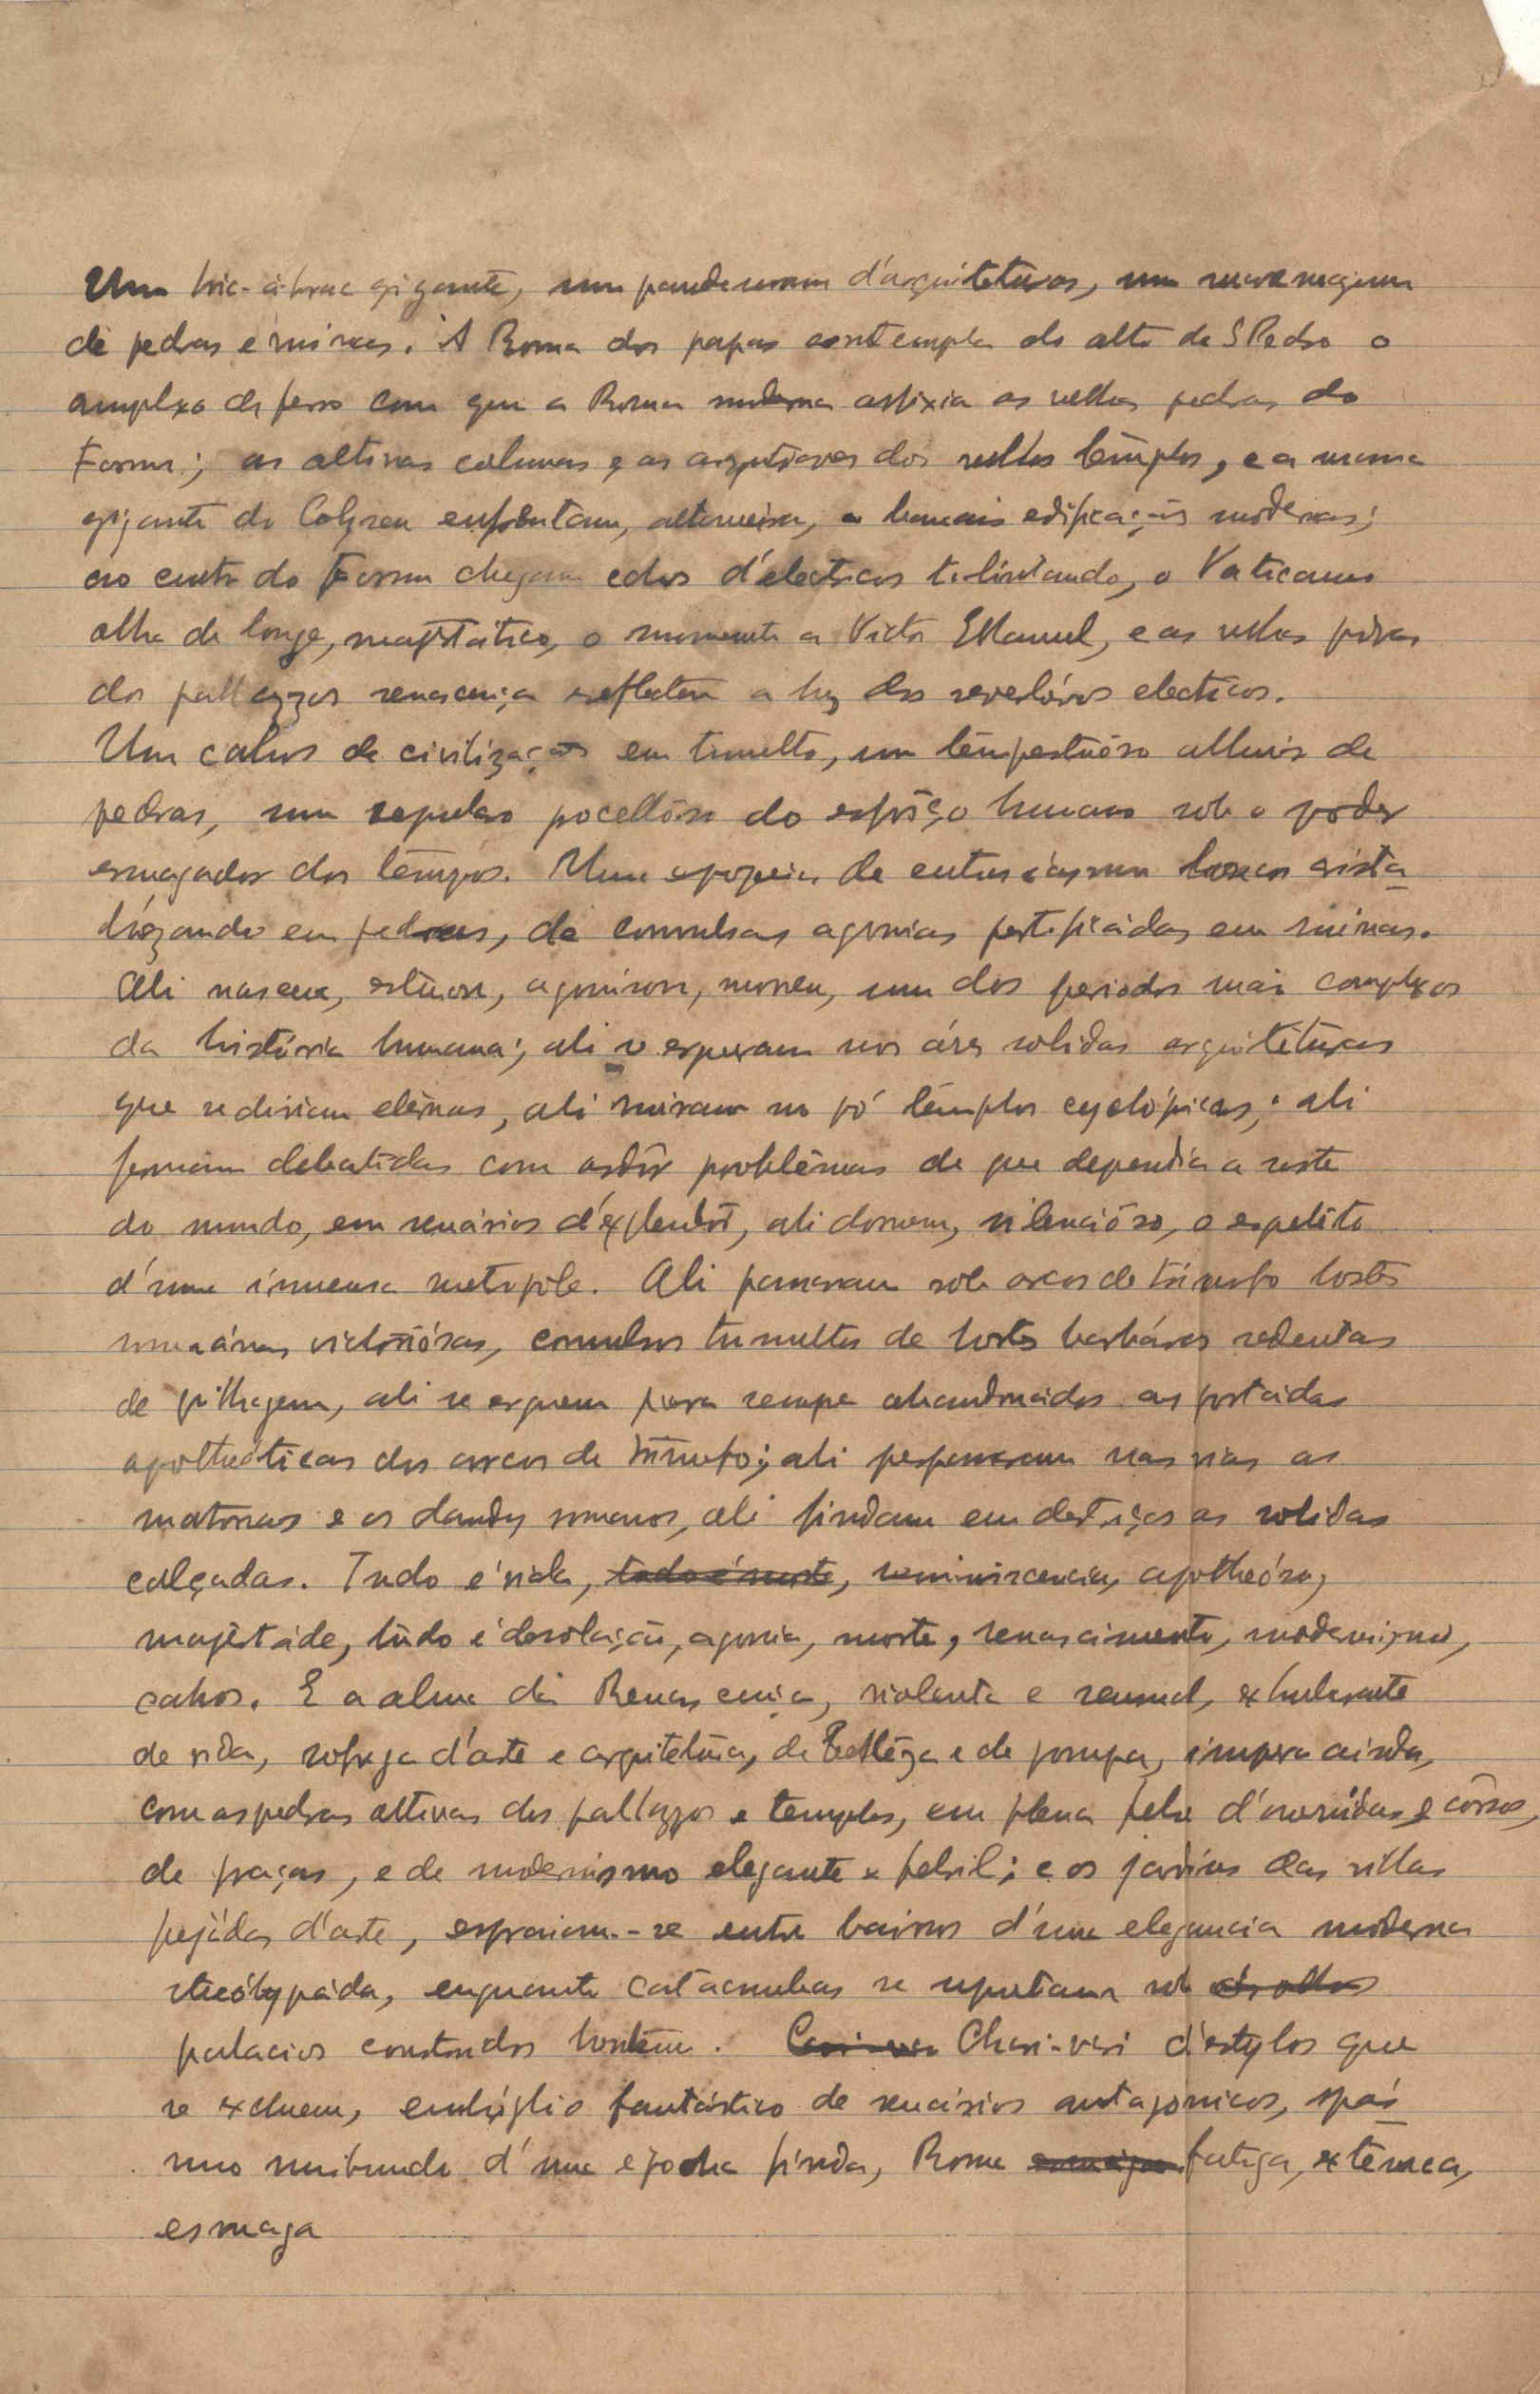 Um bric-à-brac gigante, um pandemonium d'arquiteturas, um maremagnum
de pedras e ruinas. A Roma dos papas contempla do alto de S Pedro o
amplexo de ferro com que a Roma moderna asfixia as velhas pedras do
Forum; as altivas colunas e as arquitraves dos velhos templos, e a massa
gigante do Colyseu enfrentam, altaneira, as banais edificações modernas;
ao centro do Forum chegam echos d'electricos telintando, o Vaticano
olha de longe, magestático, o monumento a Victor Emanuel, e as velhas pedras
dos pallazzos renascença reflectem a luz dos reverbéros electricos.
Um cahos de civilizações em tumulto, um tempestuôso alluir de
pedras, um sepulcro procellôso do esfôrço humano sob o poder
esmagador dos tempos. Uma epopeia de entusiasmos loucos crista
lizando em pedras, de convulsas agonias petrificádas em ruinas.
Ali nasceu, estuou, agonisou, morreu, um dos periodos mais complexos
da história humana; ali se ergueram nos áres solidas arquitetúras
que se diriam etérnas, ali ruiram no pó templos cyclópicos; ali
foram debatidos com ardôr problêmas de que dependia a sorte
do mundo, em scenários d'explendôr, ali dorme, silenciôso, o espetro
d'uma immensa metropole. Ali passaram sob arcos de triunfo hostes
romanas victoriósas, convulsos tumultos de hordas barbáras sedentas
de pilhagem, ali se erguem para sempre abandonados as portadas
apotheóticas dos arcos de triunfo; ali perpassaram nas vias as
matronas e os dandys romanos, ali findam em destroços as solidas
calçadas. Tudo é vida, tudo é morte, reminiscencia, apotheóse,
magestáde, tudo é desolação, agonia, morte, renascimento, modernismo,
cahos. E a alma da Renascença, violenta e sensual, exhuberante
de vida, sofrega d'arte e arquitetúra, de belleza e de pompa, impera ainda,
com as pedras altivas dos pallazzos e templos, em plena febre d'avenidas e córsos,
de praças, e de modernismo elegante e febril; e os jardins das villas
pejádas d'arte, espraiam-se entre bairros d'uma elegancia moderna
stereótypáda, enquanto catacumbas se sepultam sob
palacios construidos hontem. Chari-vari d'estylos que
se excluem, embróglio fantástico de scenários antagonicos, spás
mo moribundo d'uma epocha finda, Roma fatiga, extenua,
esmaga